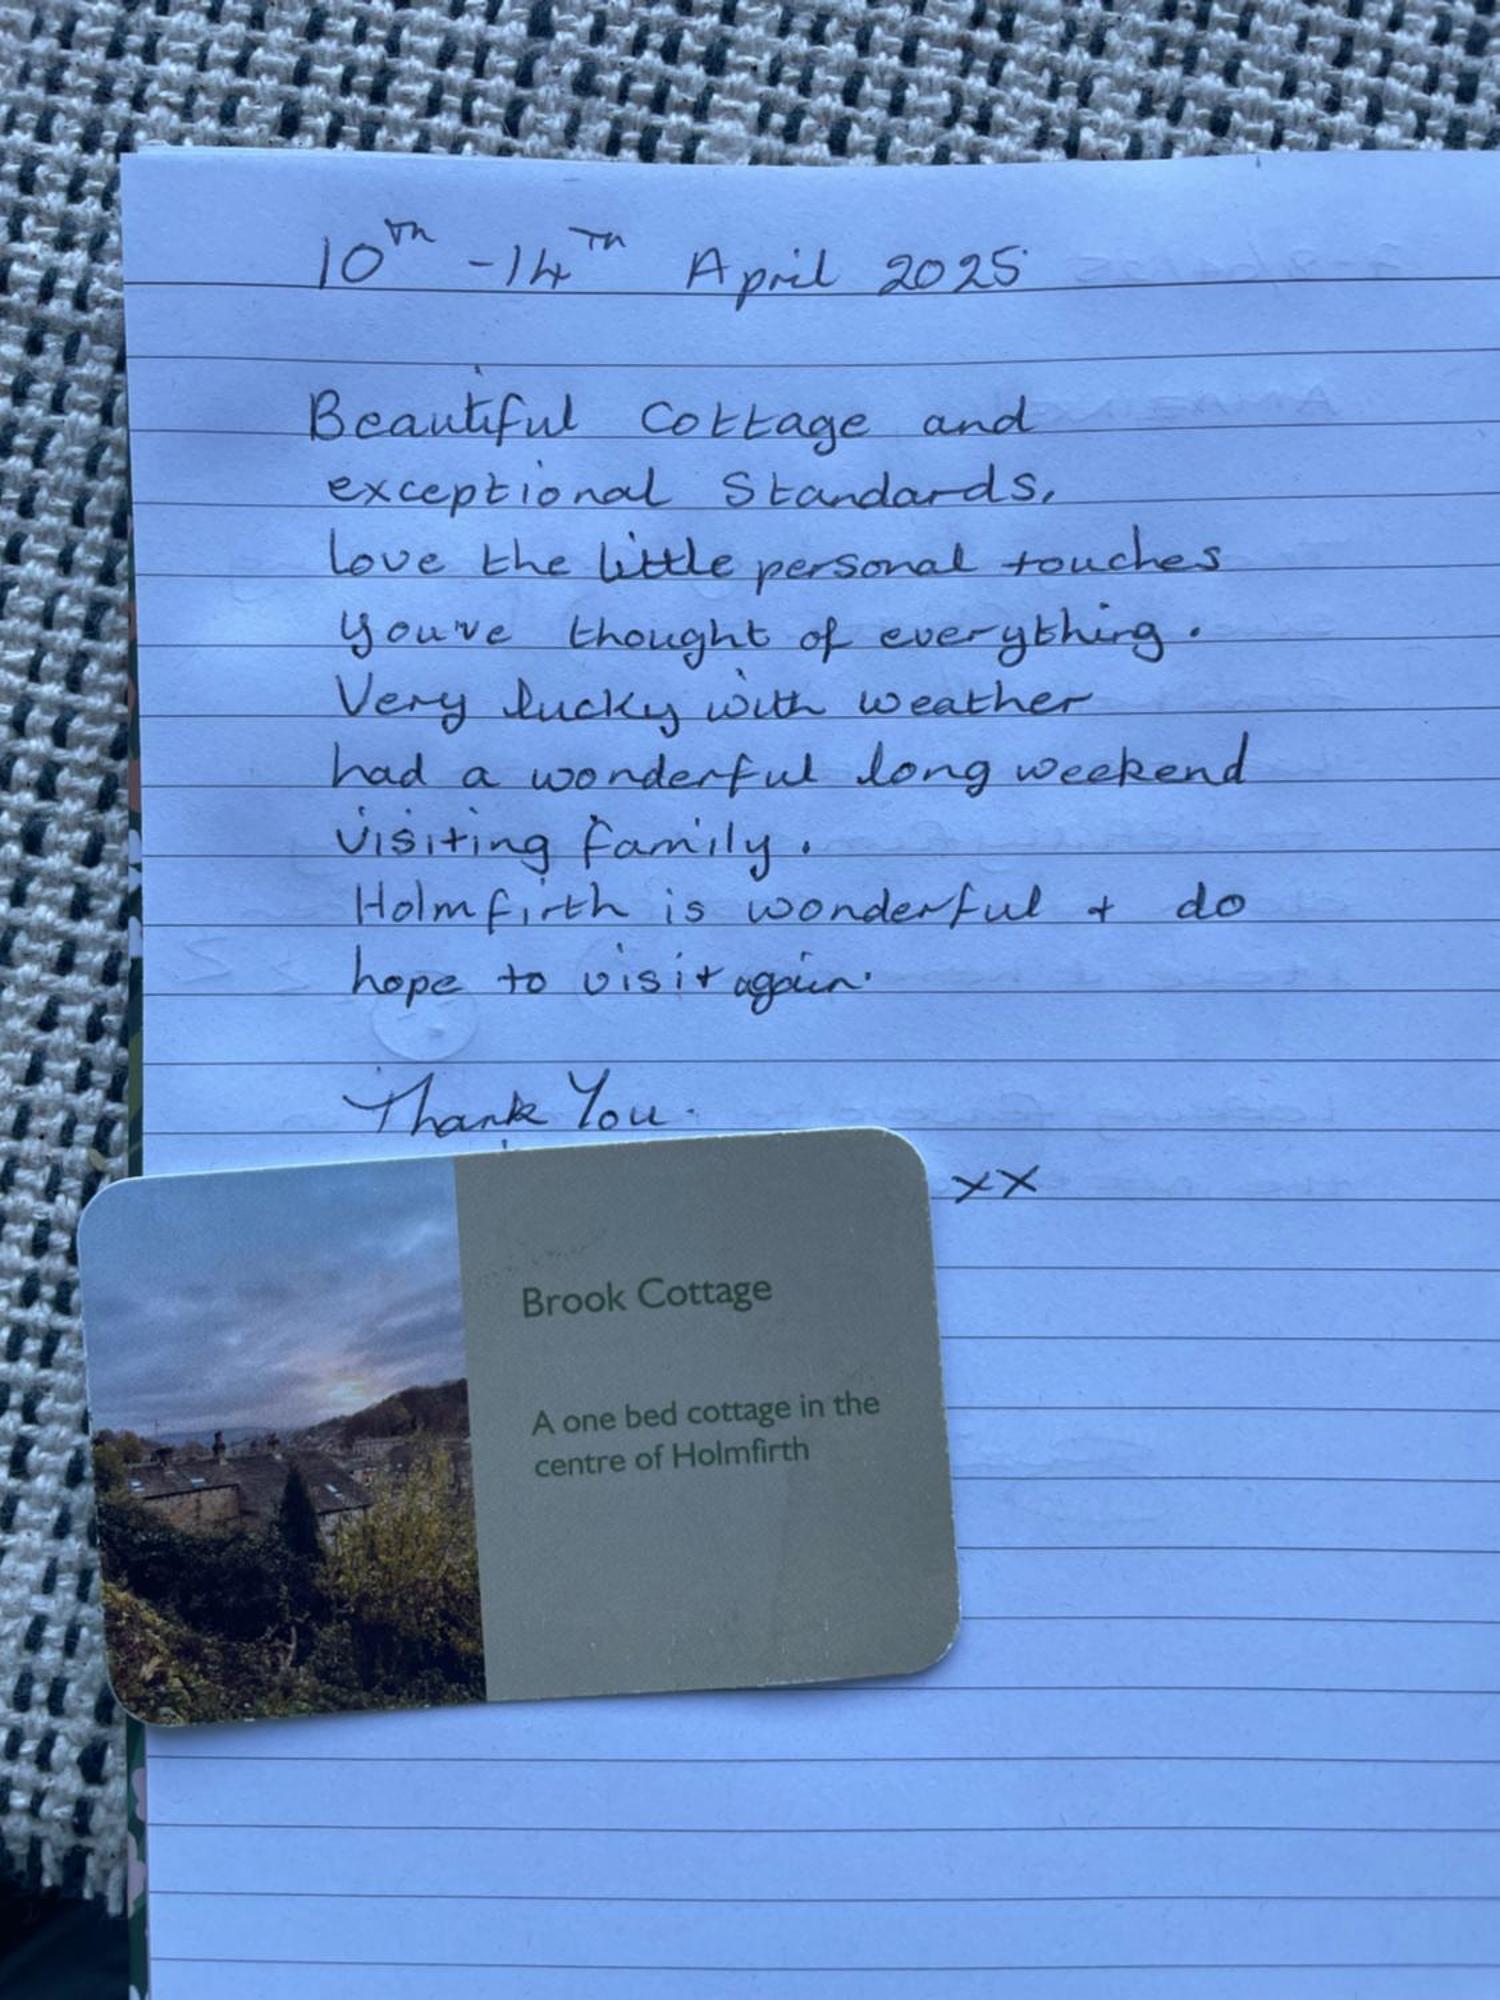 10th - 14th April 2025
Beautiful Cottage and
exceptional Standards,
love the little personal touches
you've thought of everything.
Very lucky with weather
had a wonderful long weekend
visiting family.
Holmfirth is wonderful + do
hope to visit again.
Thank You.
xx
Brook Cottage
A one bed cottage in the
centre of Holmfirth